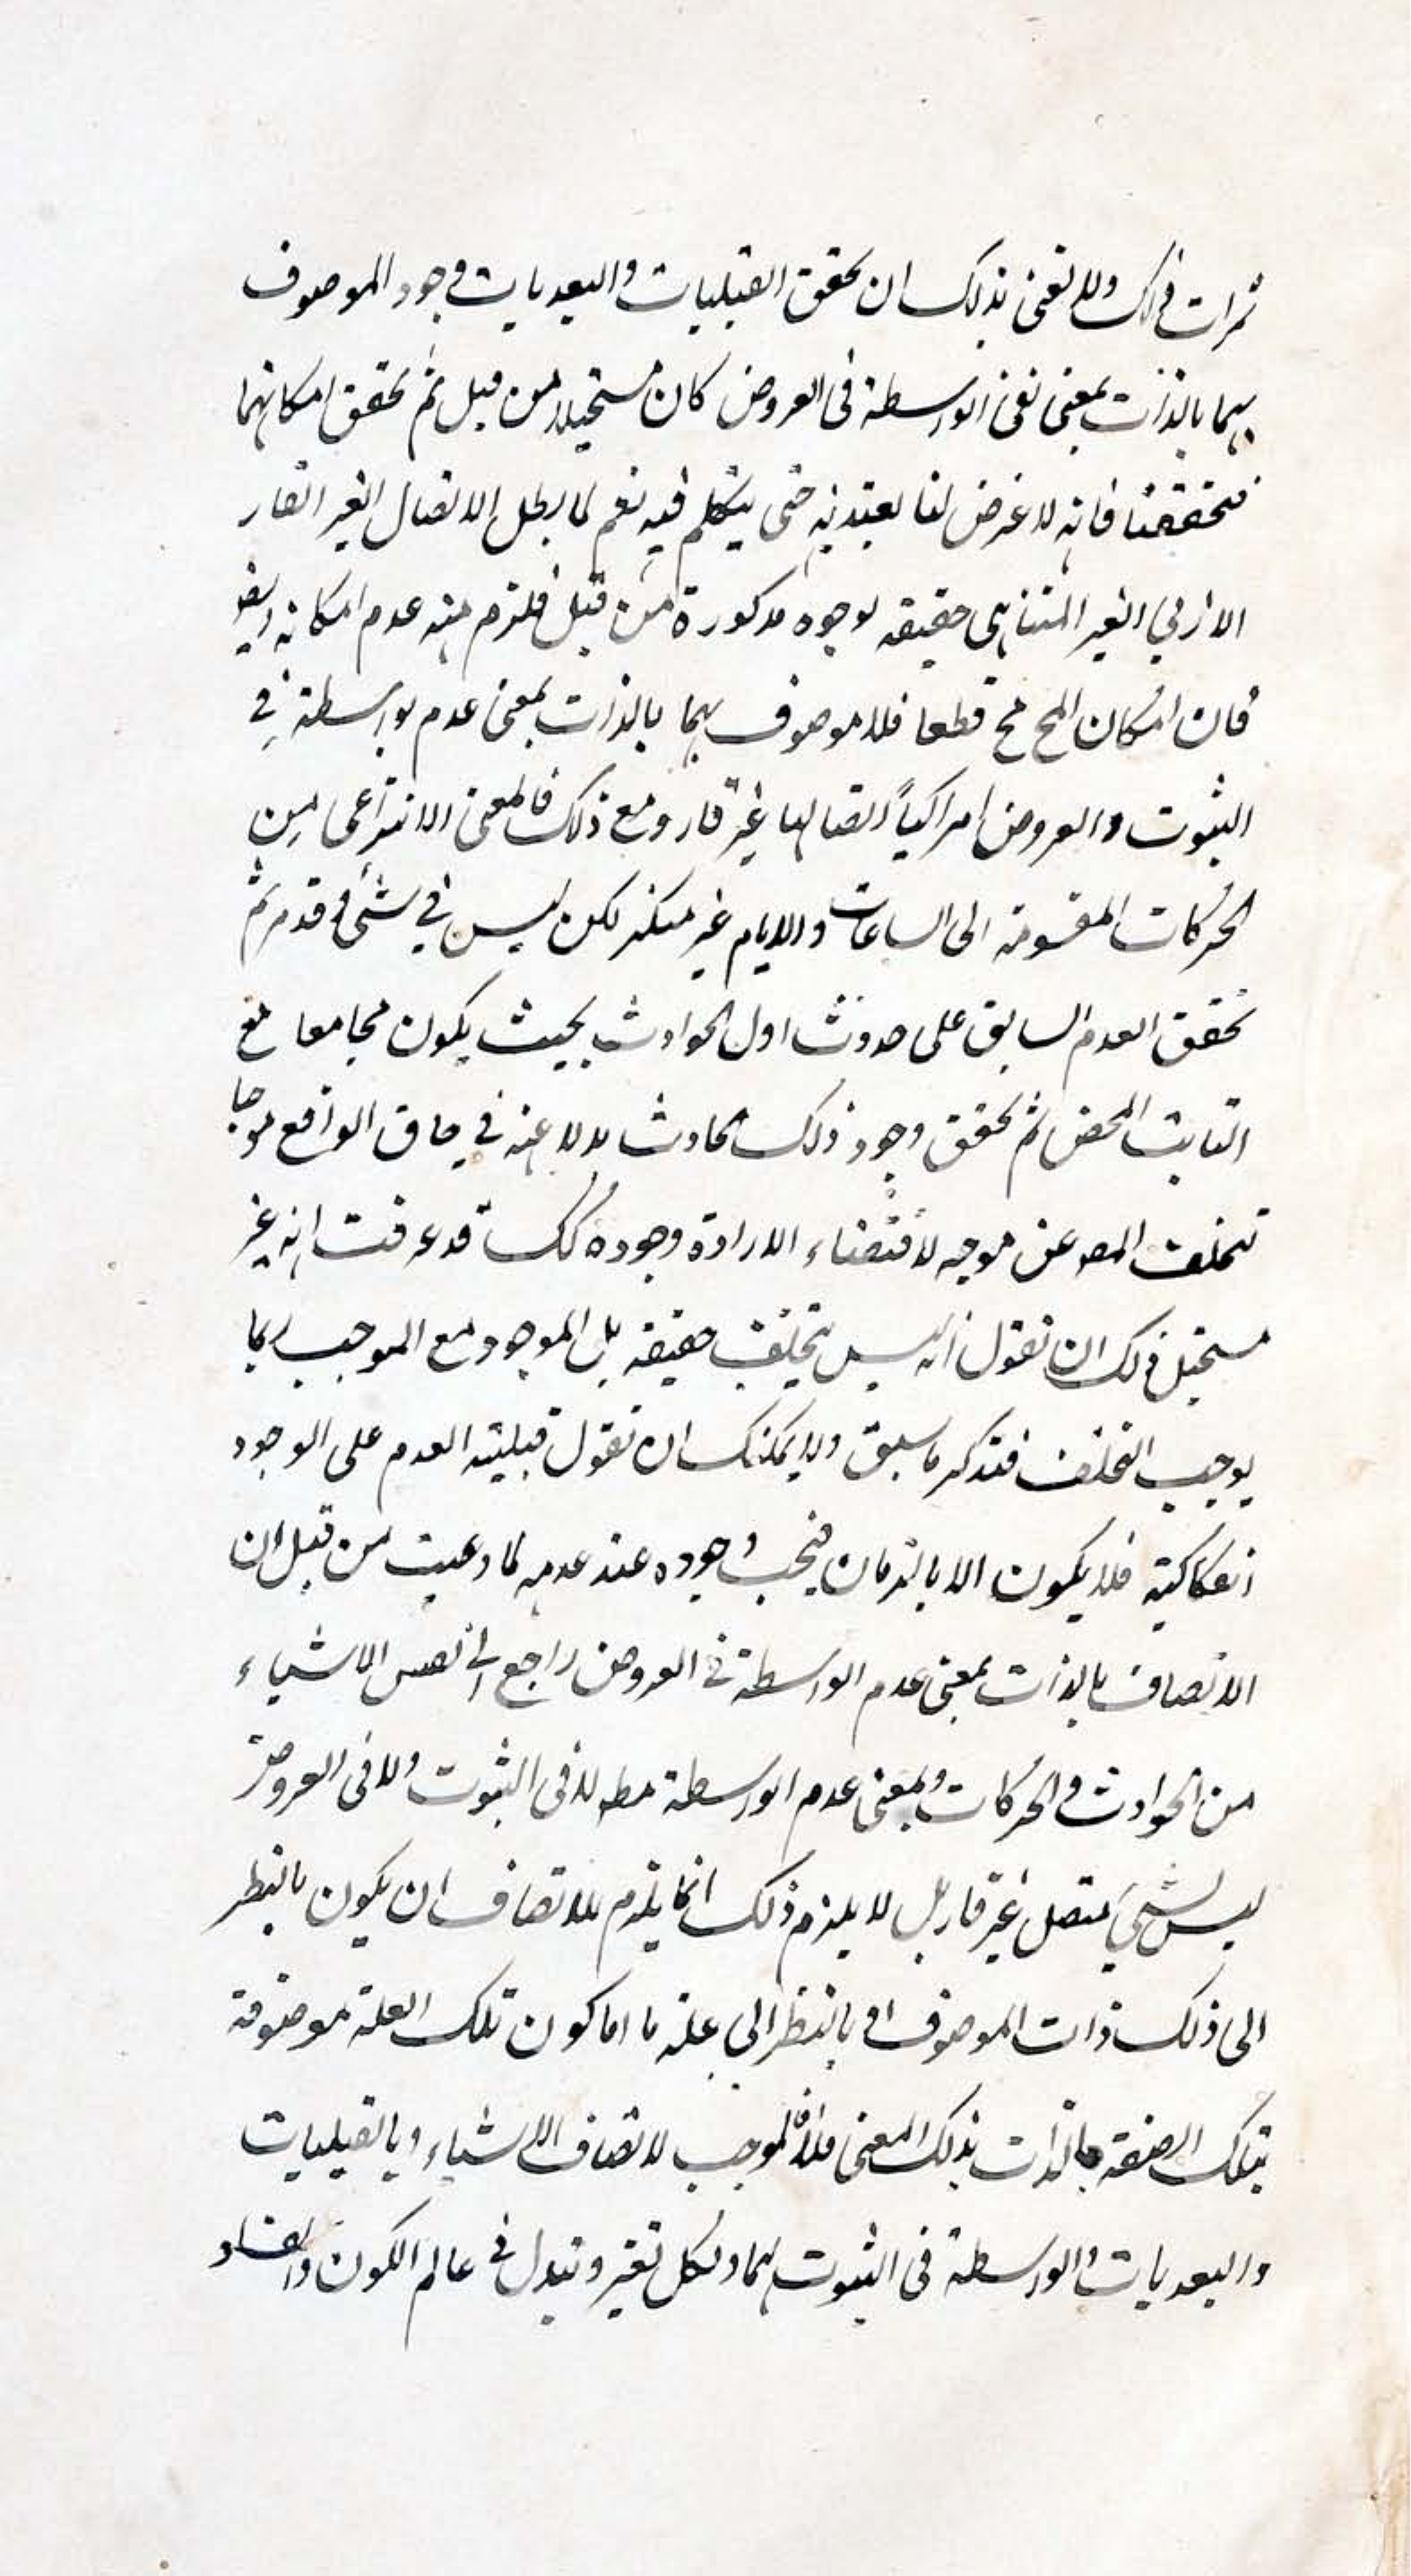 ثمرات ذلك ولا نعنى بذلك ان تحقق القبليات والبعديات وجود الموصوف
بهما بالذات بمعنى نفى الواسطة فى العروض كان مستحيلا من قبل ثم تحقق امكانهما
فتحققنا فانه لا غرض لنا يعتد به حتى يتكلم فيه نعم لما بطل الاتصال الغير القار
الازلي الغير المتناهى حقيقه لوجوه مذكورة من قبل فلزم منه عدم امكانه
فان امكان المح مح قطعا فلا موصوف بهما بالذات بمعنى عدم بواسطة في
الثبوت والعروض اتصاليا غير قار ومع ذلك فالمعنى الانتزاعى من
الحركات المقسومة الى الساعات والايام غير منكر لكن ليس في شئ قدم ثم
تحقق العدم السابق على حدوث اول الحوادث بحيث يكون مجامعا مع
الثابت المحض ثم تحقق وجود ذلك الحادث بدلا عنه في حاق الواقع موجبا
تخلف المعه عن موجبه لاقتضاء الارادة وجوده كك قد عرفت انه غير
مستحيل ولك ان تقول انه ليس بتخلف حقيقه بل الموجود مع الموجب بما
يوجب التخلف فتذكر ما سبق ولا يمكنك ان تقول قبلية العدم على الوجود
انفكاكية فلا يكون الا بالزمان فيجب وجوده عند عدمه لما دعيت من قبل ان
الاتصاف بالذات بمعنى عدم الواسطة فى العروض راجع الى نفس الاشياء
من الحوادث والحركات وبمعنى عدم الواسطة مطه لا فى الثبوت ولا فى العروض
ليس لشئ متصل غير قار بل لا يلزم ذلك انما يلزم للاتصاف ان يكون بالنظر
الى ذلك ذات الموصوف او بالنظر الى علة ما اما كون تلك العلة موصوفة
بتلك الصفة بالذات بذلك المعنى فلا فالموجب لاتصاف الاشياء وبالقبليات
والبعديات والواسطة فى الثبوت لهما ولكل تغير وتبدل فى عالم الكون والفساد